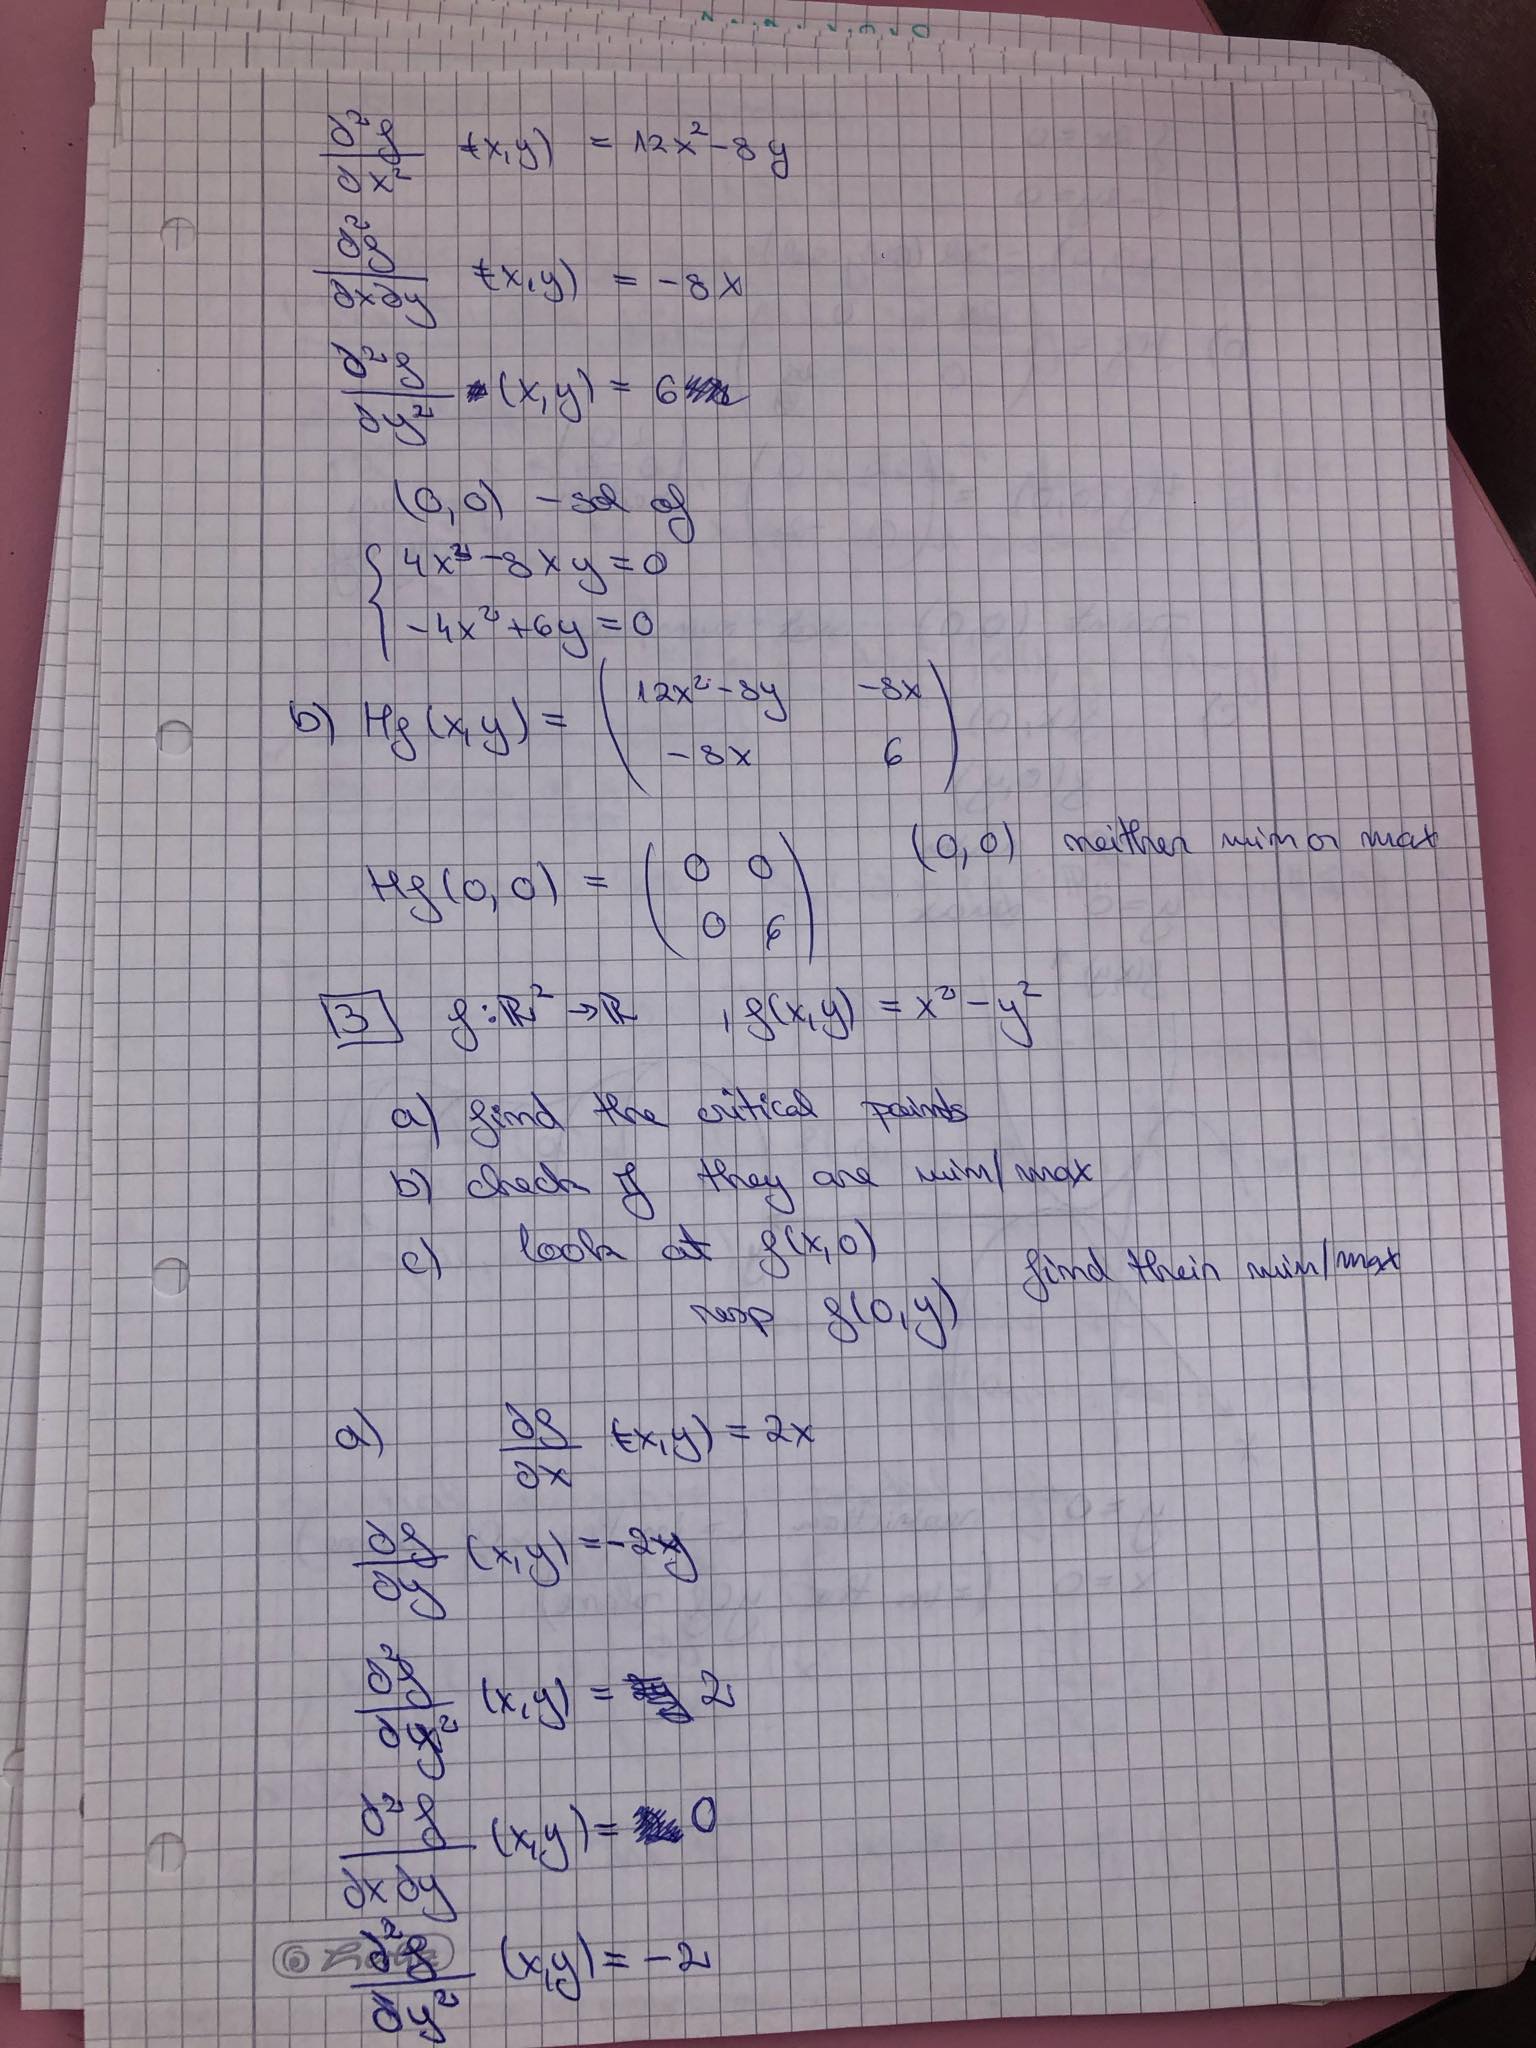 ∂²g/∂x² (x,y) = 12x² - 8y
∂²g/∂x∂y (x,y) = -8x
∂²g/∂y² (x,y) = 6
(0,0) - sol of
{ 4x³ - 8xy = 0
-4x² + 6y = 0
b) Hg(x,y) = ( 12x² - 8y -8x
-8x 6 )
Hg(0,0) = ( 0 0
0 6 ) (0,0) neither min or max
3 g: ℝ² → ℝ , g(x,y) = x² - y²
a) find the critical points
b) check if they are min/max
c) look at g(x,0)
resp g(0,y) find their min/max
a) ∂g/∂x (x,y) = 2x
∂g/∂y (x,y) = -2y
∂²g/∂x² (x,y) = 2
∂²g/∂x∂y (x,y) = 0
∂²g/∂y² (x,y) = -2